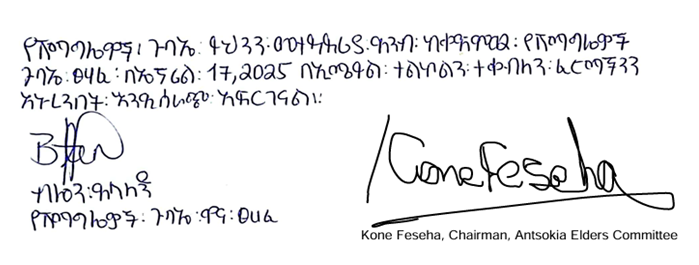 የሽማግሌዎች፡ ጉባኤ፡ ይህንን፡ መተዳደሪያ ደንብ፡ ከተቀዳሚው፡ የሽማግሌዎች
ጉባኤ፡ ፀሀፊ፡ በኤፕሪል፡ 17,2025 በኢሜይል፡ ተልኮልን፡ ተቀብለን፡ ፊርማችንን
አኑረንበት፡ እንዲሰራጭ፡ አድርገናል።
የሽማግሌዎች፡ ጉባኤ፡ ዋና፡ ፀሀፊ
Kone Feseha
Kone Feseha, Chairman, Antsokia Elders Committee